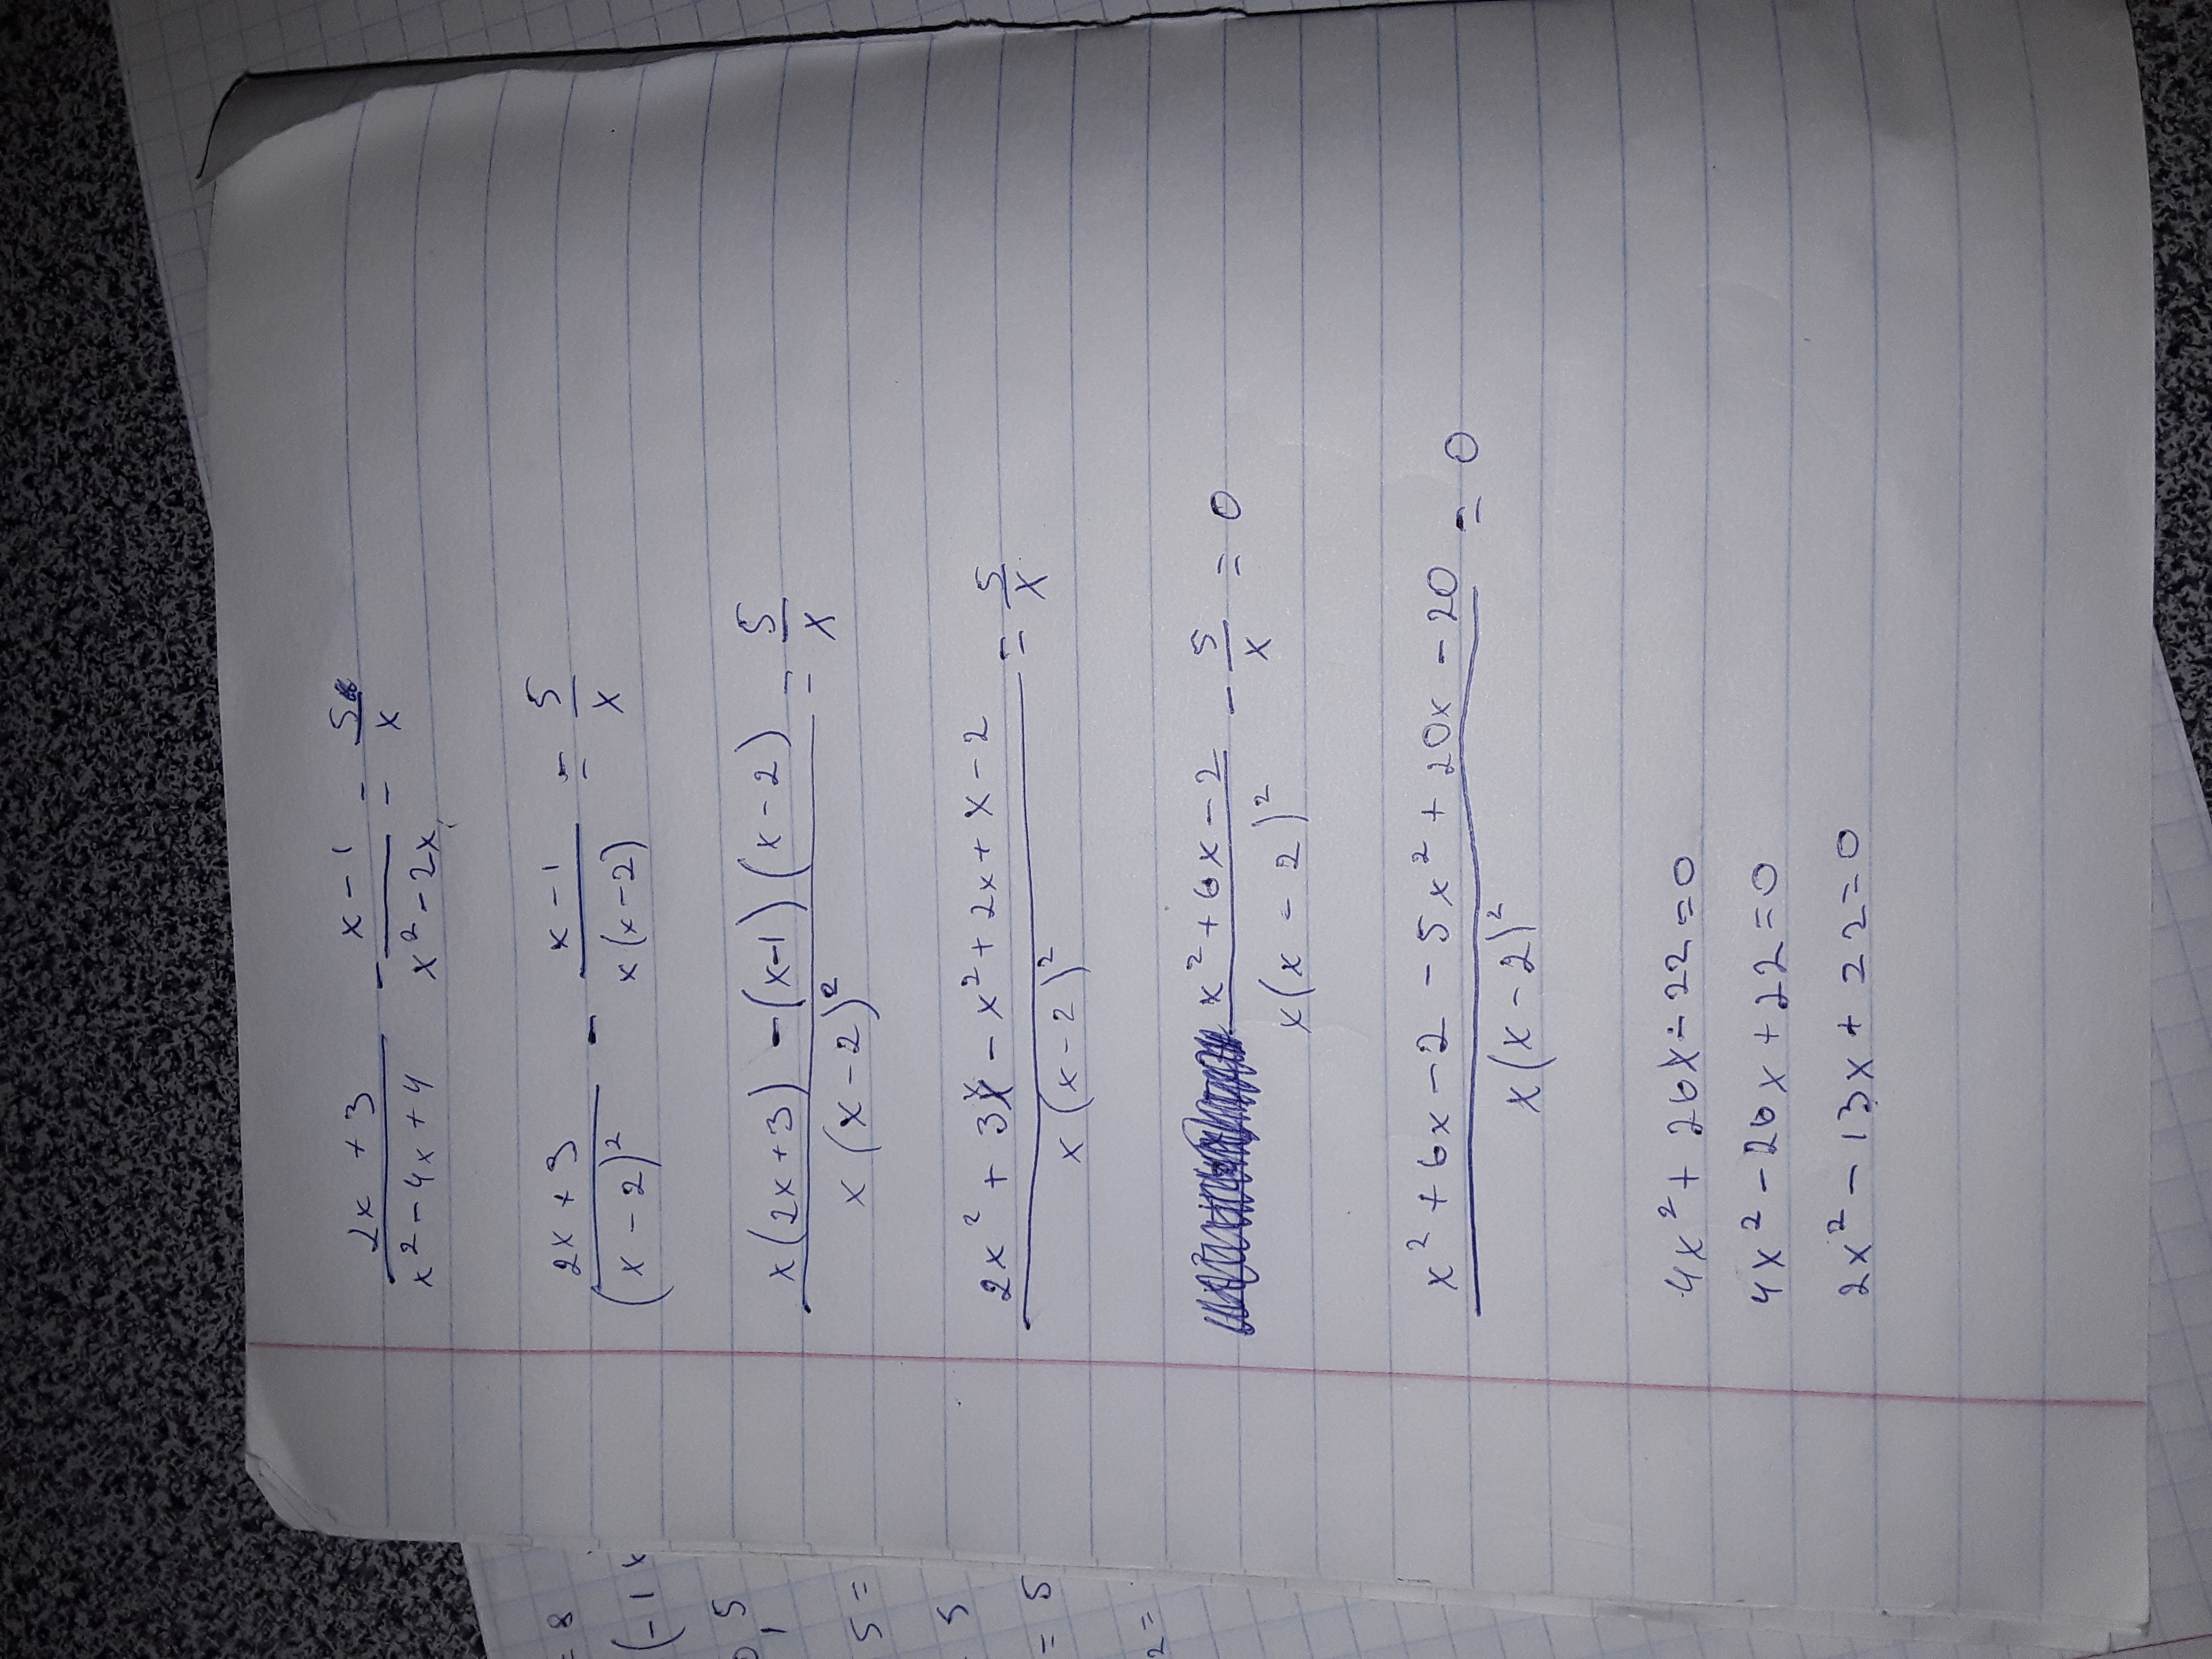 2x + 3 / x² - 4x + 4 - x - 1 / x² - 2x = 5 / x
2x + 3 / (x - 2)² - x - 1 / x(x - 2) = 5 / x
x(2x + 3) - (x - 1)(x - 2) / x(x - 2)² = 5 / x
2x² + 3x - x² + 2x + x - 2 / x(x - 2)² = 5 / x
x² + 6x - 2 / x(x - 2)² - 5 / x = 0
x² + 6x - 2 - 5x² + 20x - 20 / x(x - 2)² = 0
4x² + 26x - 22 = 0
4x² - 26x + 22 = 0
2x² - 13x + 22 = 0
= 8
(-1
,5
5 =
5
= 5
2 =